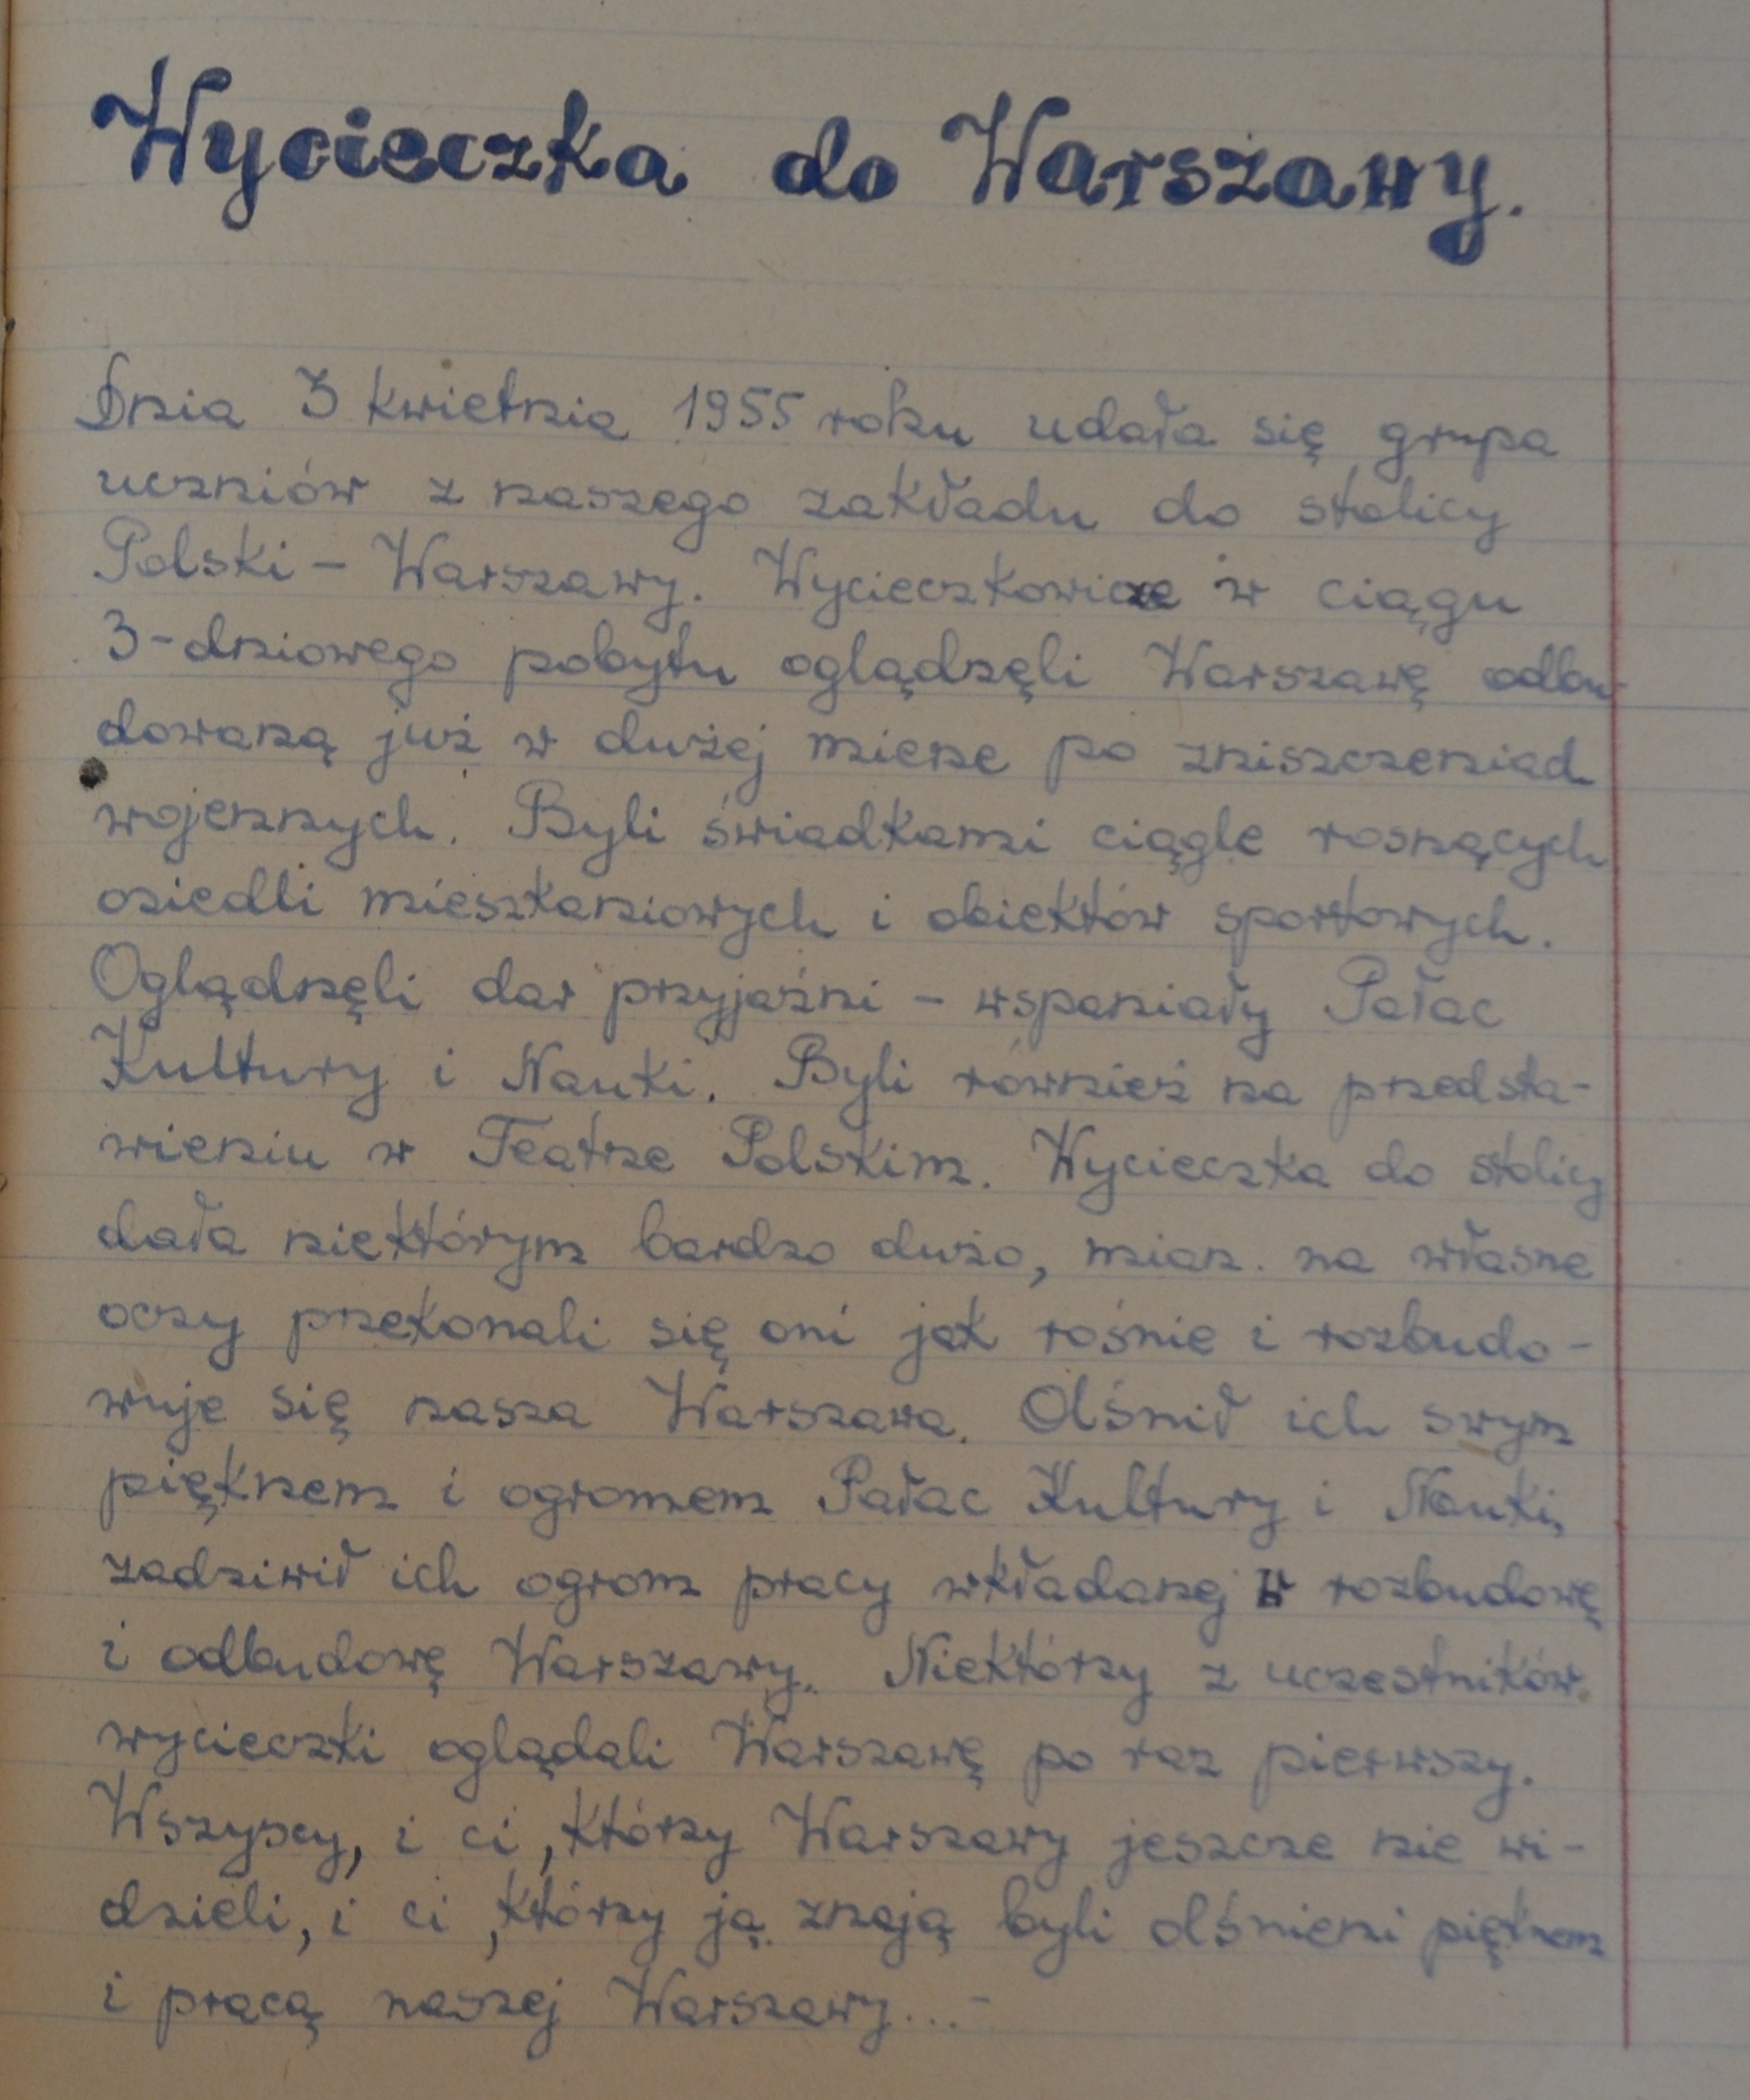 Wycieczka do Warszawy.
Dnia 3 kwietnia 1955 roku udała się grupa
uczniów z naszego zakładu do stolicy
Polski – Warszawy. Wycieczkowicze w ciągu
3-dniowego pobytu oglądnęli Warszawę odbu-
dowaną już w dużej mierze po zniszczeniach
wojennych. Byli świadkami ciągle rosnących
osiedli mieszkaniowych i obiektów sportowych.
Oglądnęli dar przyjaźni – wspaniały Pałac
Kultury i Nauki. Byli również na przedsta-
wieniu w Teatrze Polskim. Wycieczka do stolicy
dała niektórym bardzo dużo, mian. na własne
oczy przekonali się oni jak rośnie i rozbudo-
wuje się nasza Warszawa. Olśnił ich swym
pięknem i ogromem Pałac Kultury i Nauki,
zadziwił ich ogrom pracy wkładanej w rozbudowę
i odbudowę Warszawy. Niektórzy z uczestników
wycieczki oglądali Warszawę po raz pierwszy.
Wszyscy, i ci, którzy Warszawy jeszcze nie wi-
dzieli, i ci, którzy ją znają byli olśnieni pięknem
i pracą naszej Warszawy...-